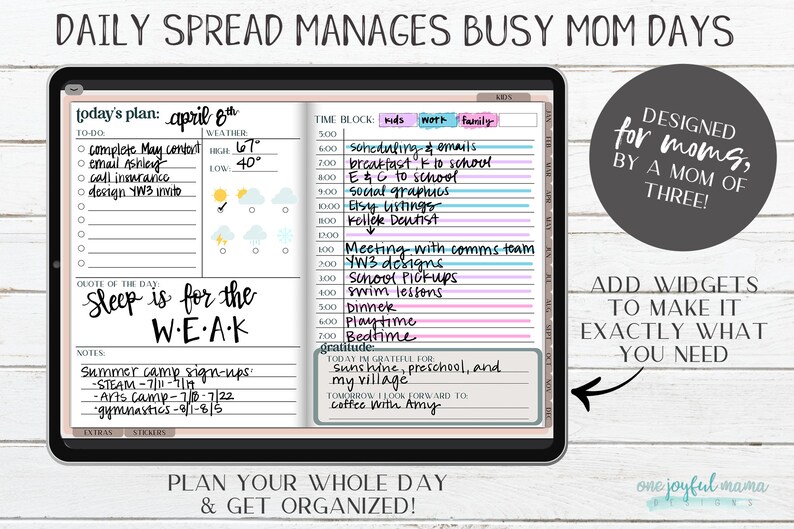 DAILY SPREAD MANAGES BUSY MOM DAYS
KIDS
today's plan: april 8th
TO-DO:
complete May content
email Ashley
call insurance
design YW3 invite
WEATHER:
HIGH: 67°
LOW: 40°
QUOTE OF THE DAY:
Sleep is for the
W·E·A·K
NOTES:
Summer camp sign-ups:
-STEAM - 7/11 - 7/14
-Arts Camp - 7/18 - 7/22
-gymnastics - 8/1 - 8/5
EXTRAS STICKERS
TIME BLOCK: kids work family
5:00
6:00 scheduling & emails
7:00 breakfast, K to school
8:00 E & C to school
9:00 social graphics
10:00 Etsy listings
11:00 Keller Dentist
12:00
1:00 Meeting with comms team
2:00 YW3 designs
3:00 School Pickups
4:00 swim lessons
5:00 Dinner
6:00 Playtime
7:00 Bedtime
gratitude:
TODAY I'M GRATEFUL FOR:
sunshine, preschool, and
my village
TOMORROW I LOOK FORWARD TO:
coffee with Amy
JAN
FEB
MAR
APR
MAY
JUN
JUL
AUG
SEPT
OCT
NOV
DEC
DESIGNED
for moms,
BY A MOM OF
THREE!
ADD WIDGETS
TO MAKE IT
EXACTLY WHAT
YOU NEED
PLAN YOUR WHOLE DAY
& GET ORGANIZED!
one joyful mama
DESIGNS